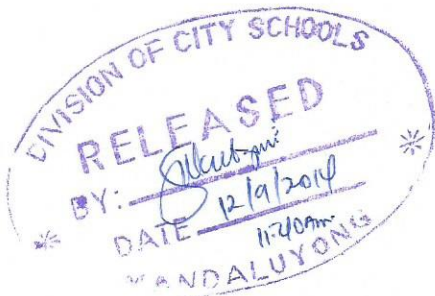 DIVISION OF CITY SCHOOLS
RELEASED
BY:
DATE 12/9/2014
11:40am
MANDALUYONG